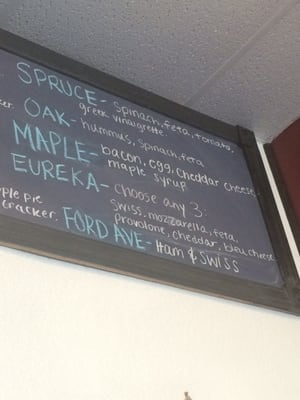 SPRUCE- spinach, feta, tomato,
greek vinaigrette
ker. OAK- hummus, spinach, feta
MAPLE- bacon, egg, cheddar cheese
maple syrup
EUREKA- choose any 3.
swiss, mozzarella, feta,
ple pie provolone, cheddar, bleu cheese
cracker. FORD AVE- Ham & SWISS